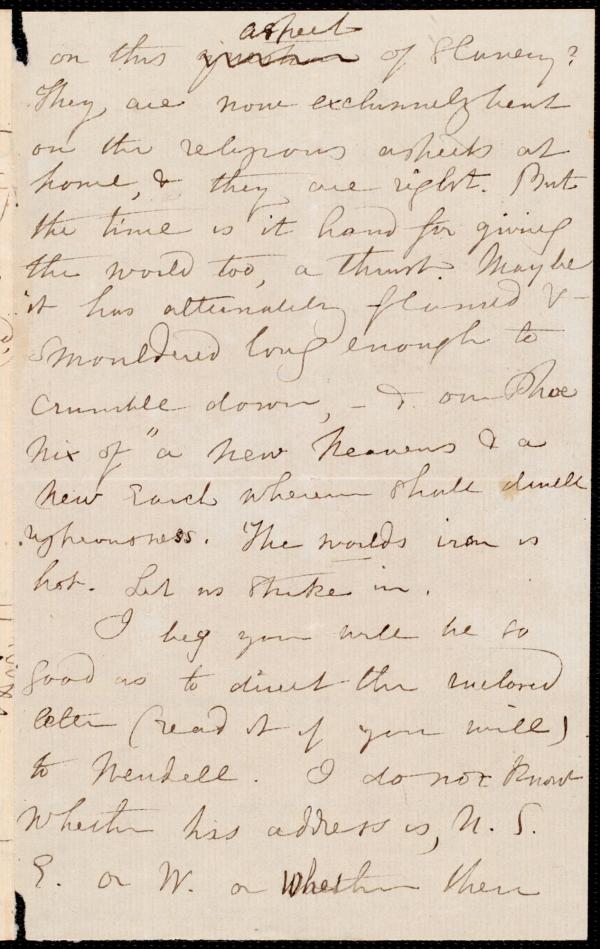 aspect
on this question of Slavery?
They are now exclusively bent
on the religious aspects at
home, & they are right. But
the time is at hand for giving
the world too, a thrust. Maybe
it has alternately flamed &
smouldered long enough to
crumble down, - & our Phoe
nix of "a New Heavens & a
New Earth wherein shall dwell
righteousness. The worlds iron is
hot. Let us strike in.
I beg you will be so
good as to direct the inclosed
letter (read it if you will)
to Wendell. I do not know
whether his address is, N. S.
E. or W. or whether there